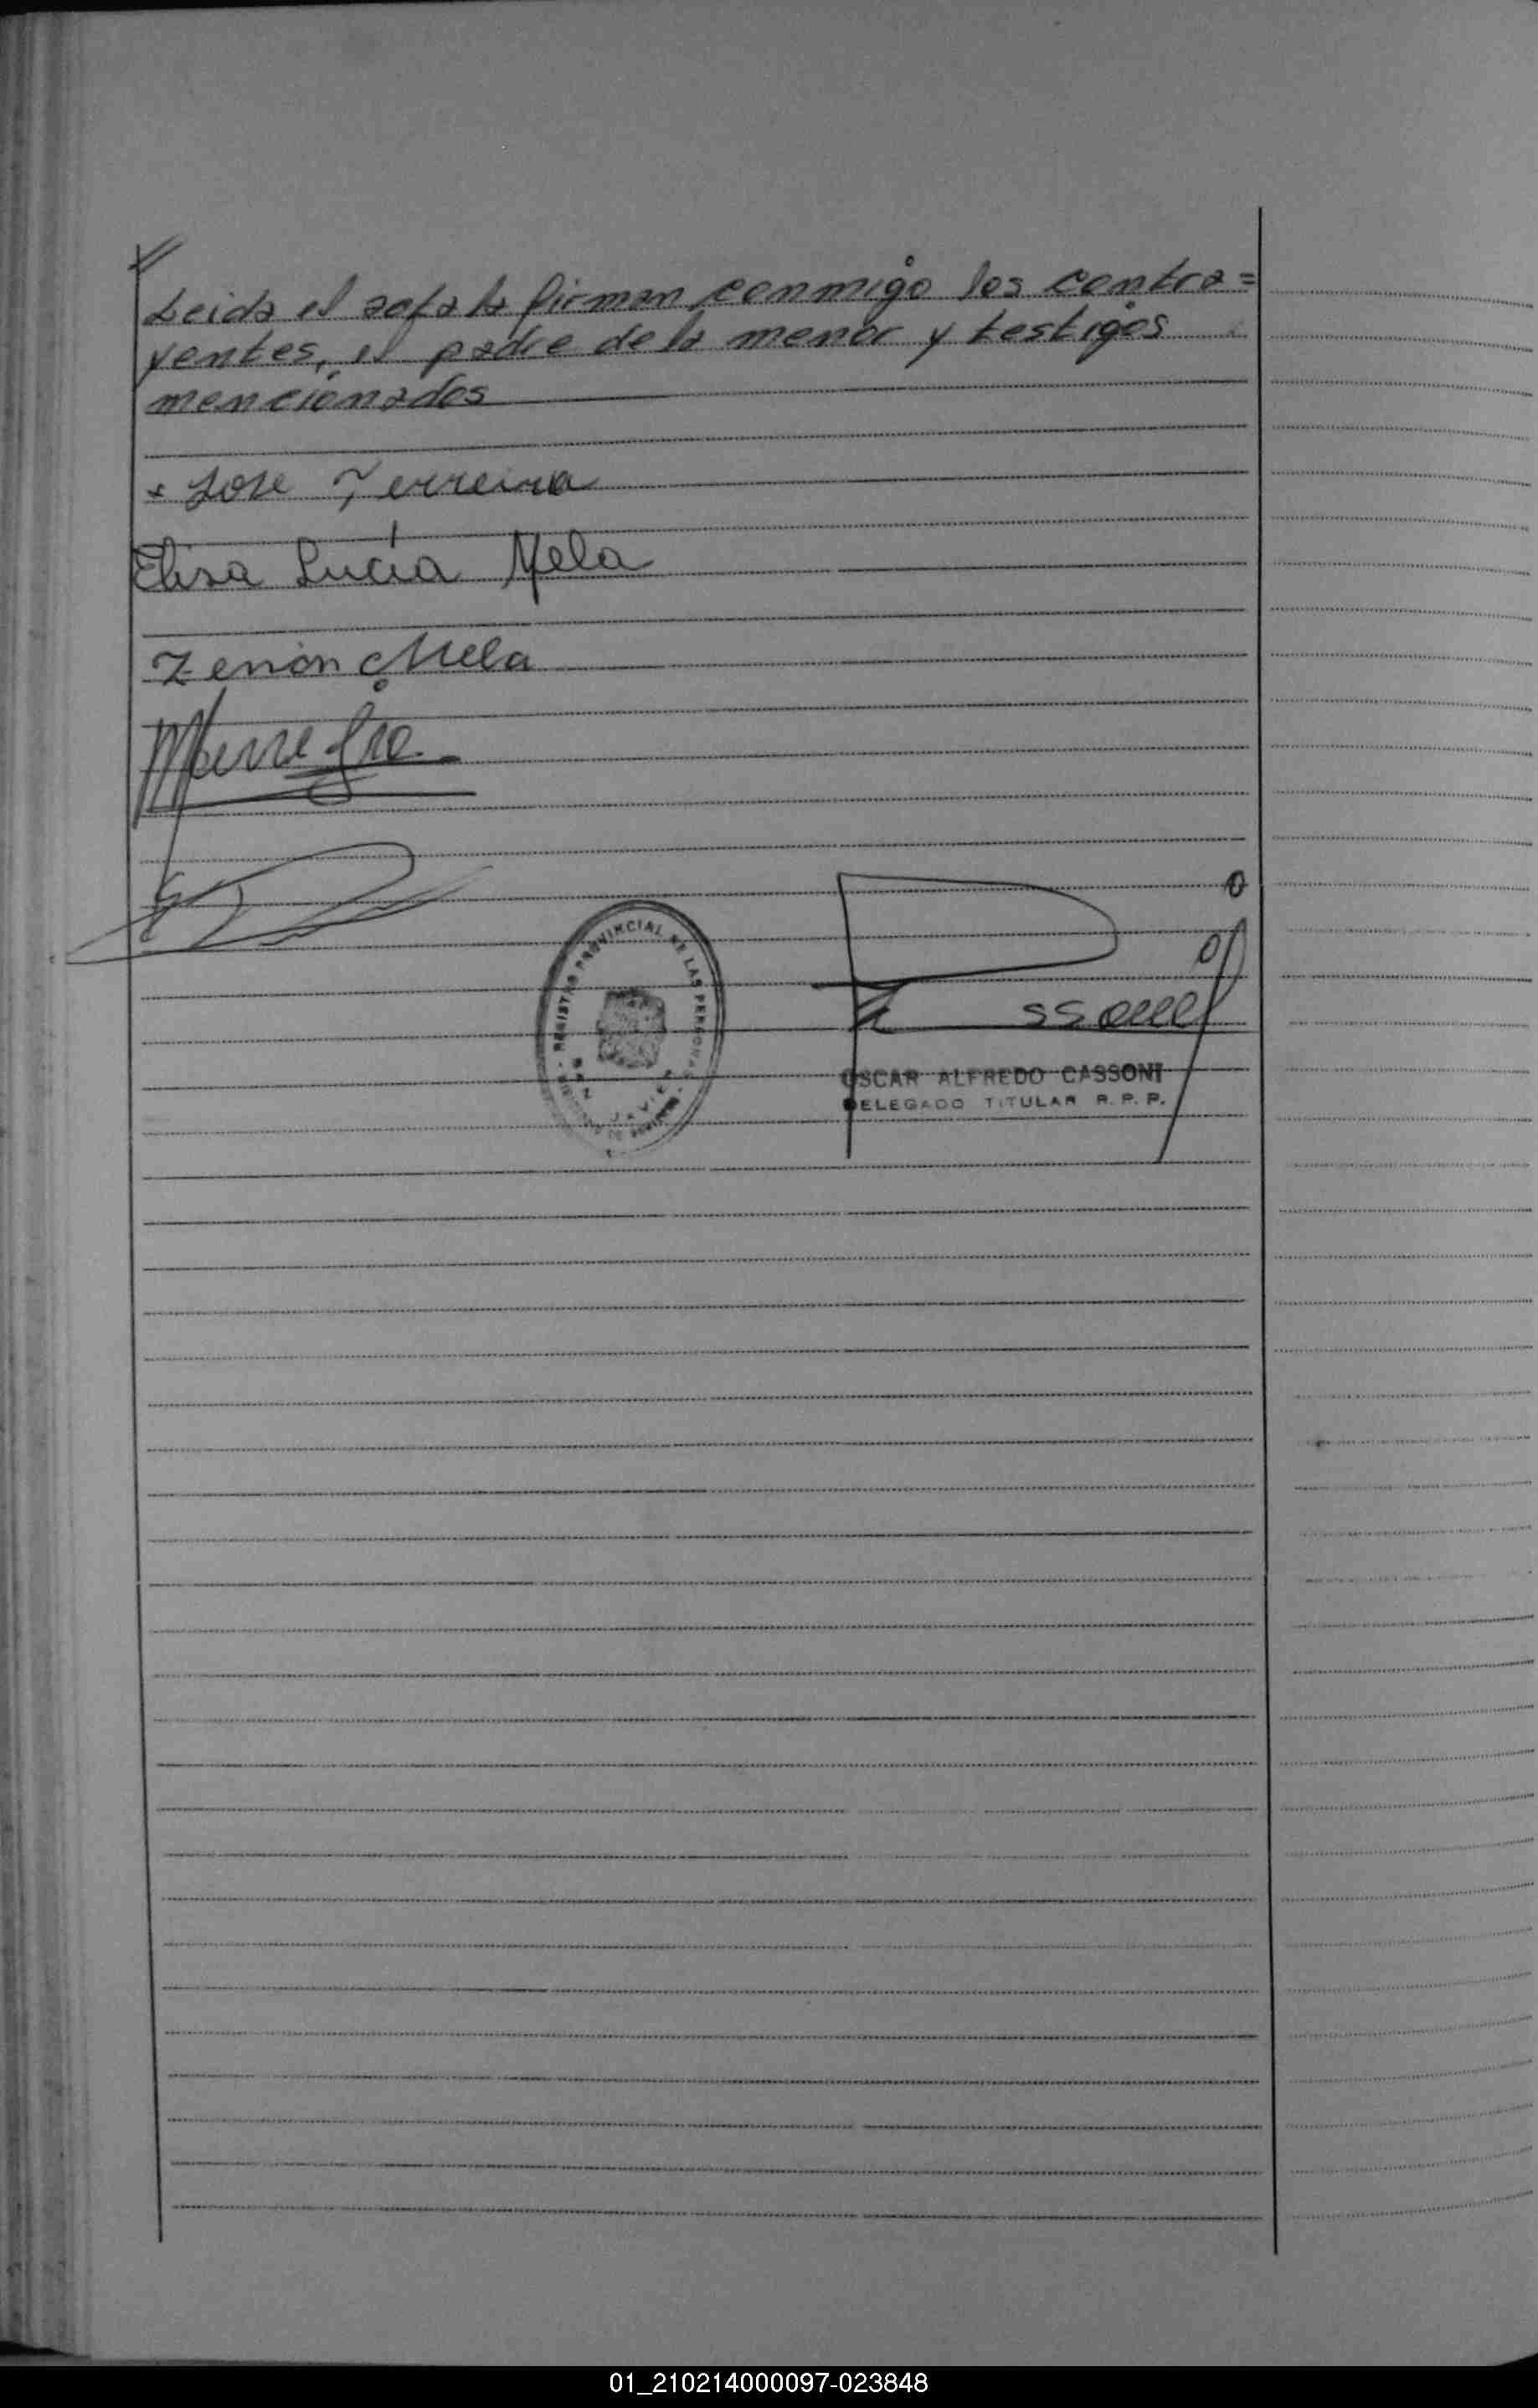 Leida el acta la firman conmigo los contra=
yentes, el padre de la menor y testigos
mencionados
Jose Ferreira
Elisa Lucía Mela
Zenón Mela
REGISTRO PROVINCIAL DE LAS PERSONAS
JAVIER
OSCAR ALFREDO CASSONI
DELEGADO TITULAR R. P. P.
01_210214000097-023848